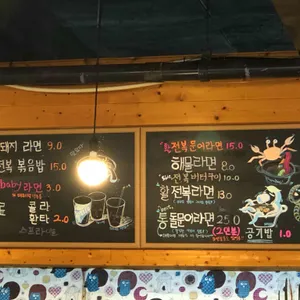 돼지 라면 9.0
전복 볶음밥 15.0
baby라면 3.0
콜라
환타 2.0
스프라이트
활 전복 문어라면 15.0
해물라면 8.0
전복버터구이 10.0
활 전복라면 13.0
통 돌문어라면 25.0
(2인분)
공기밥 1.0